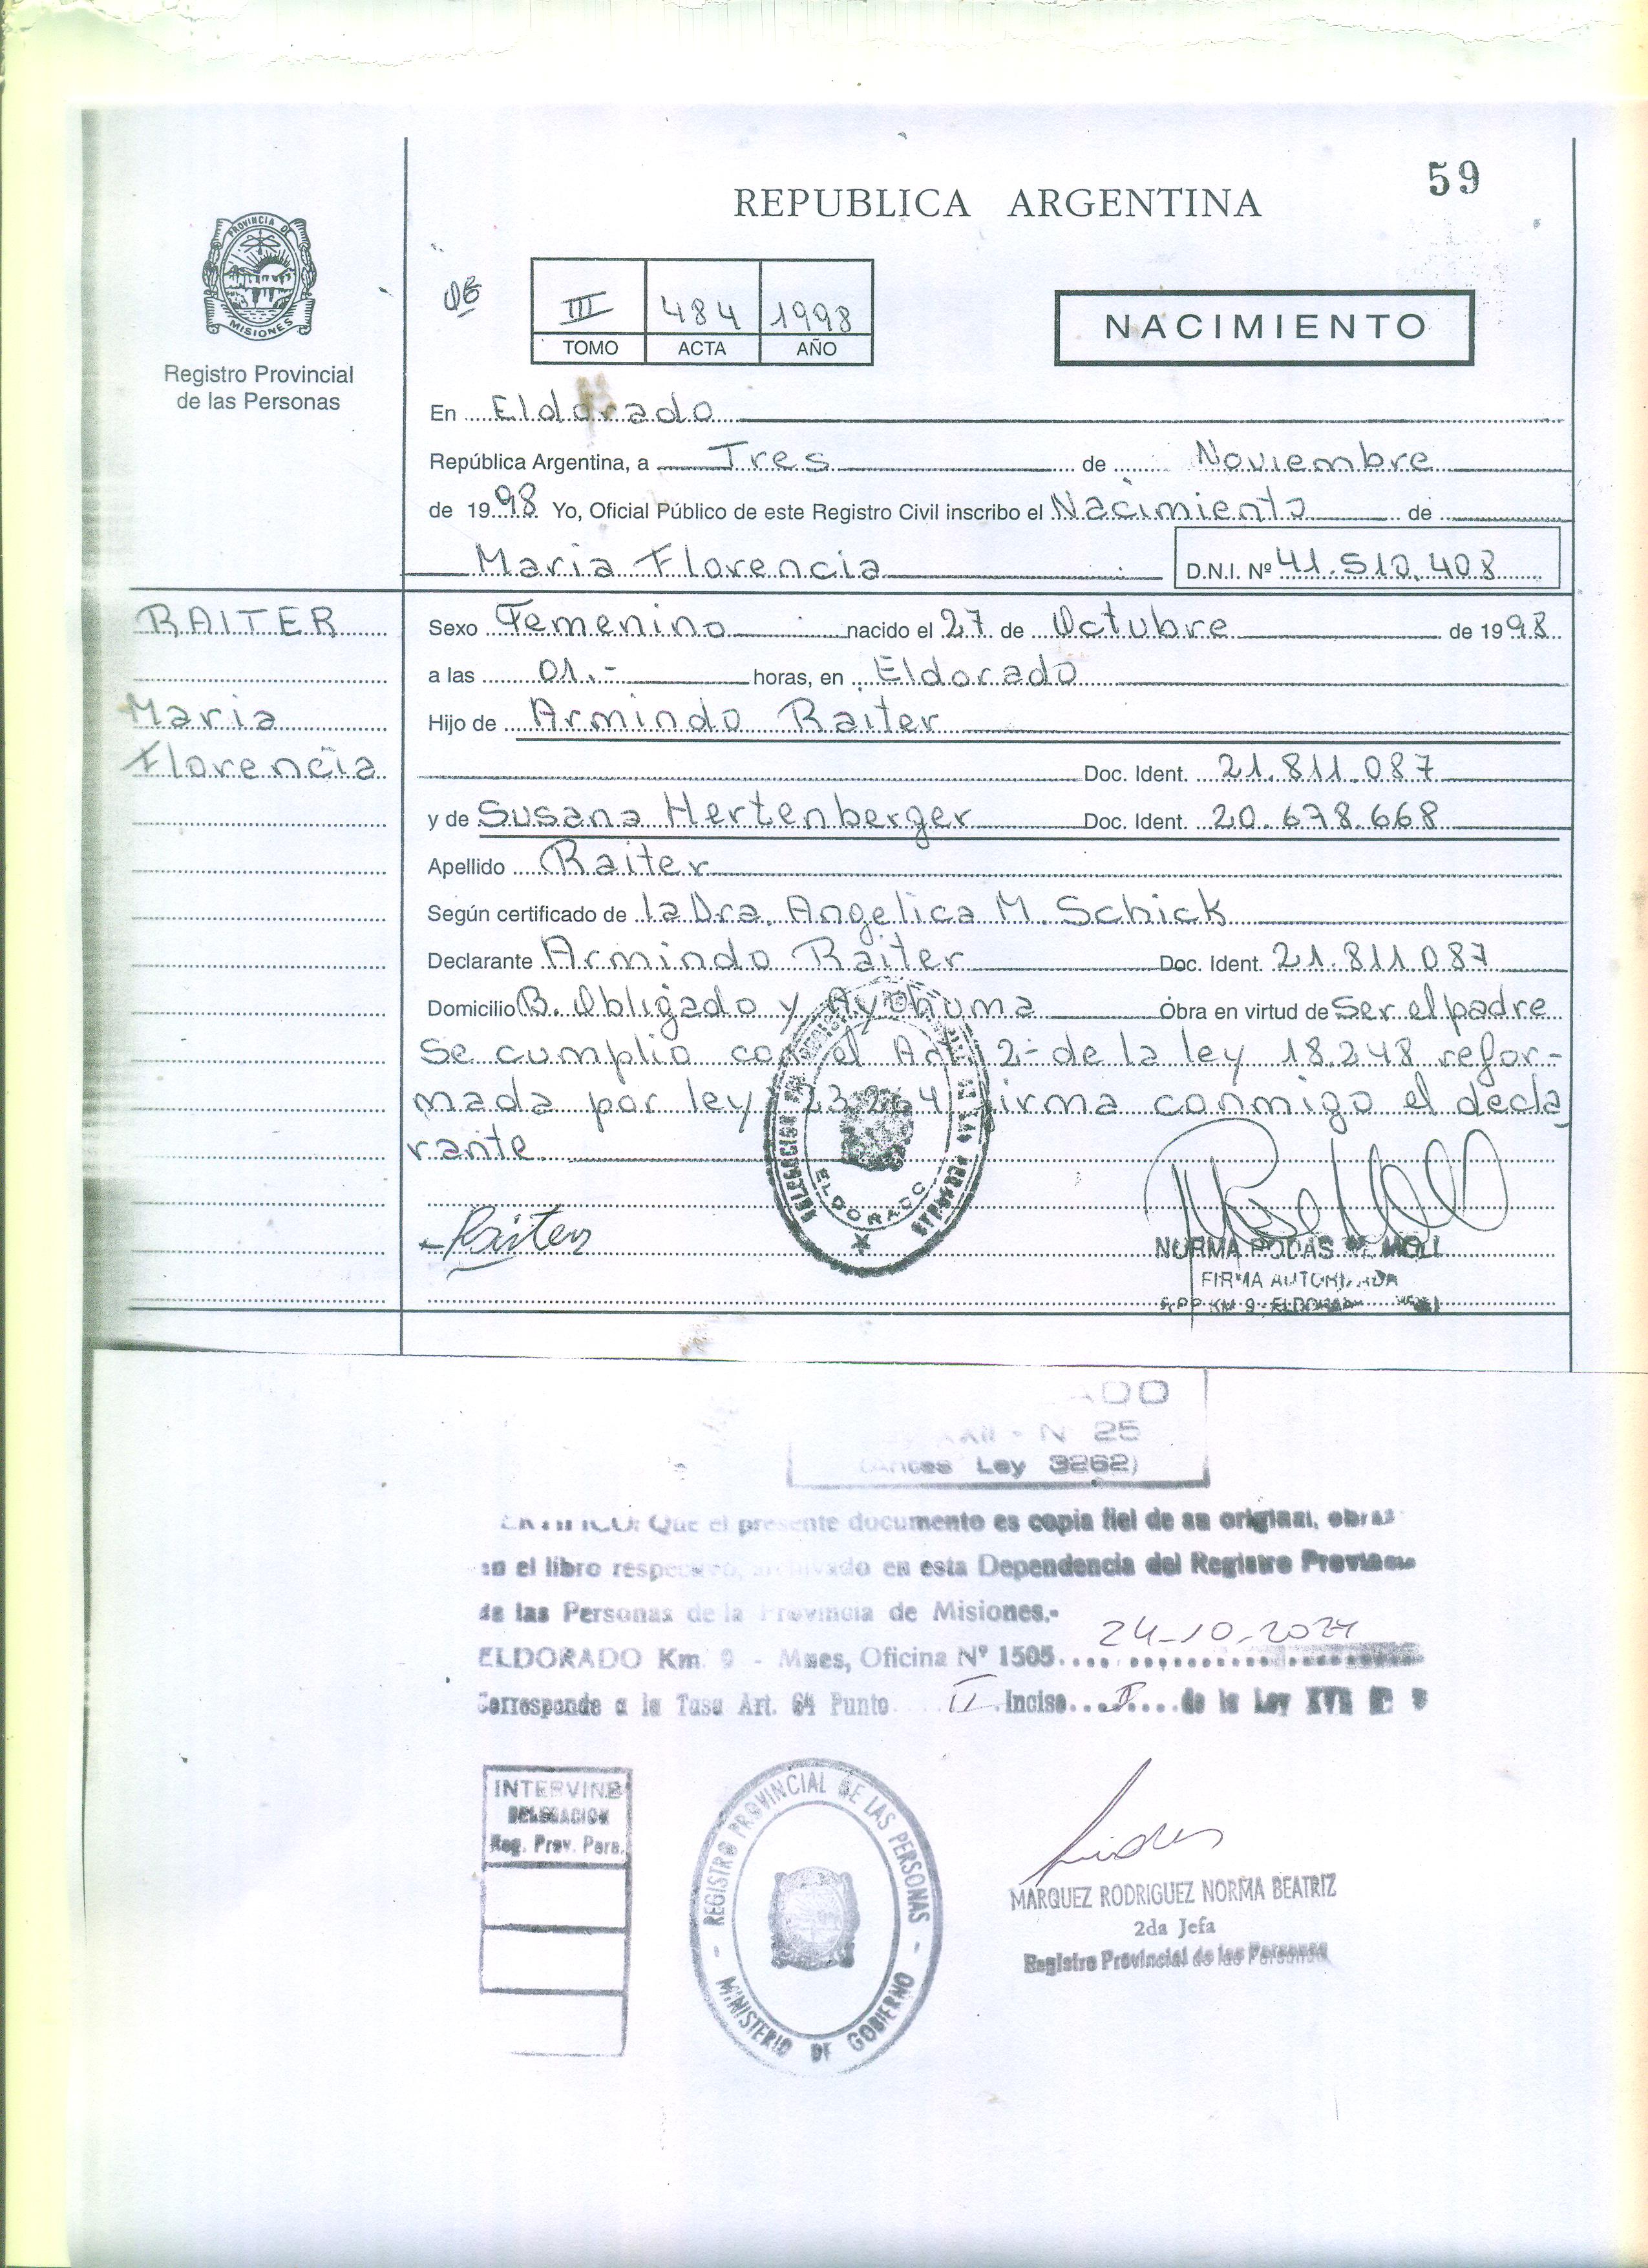 59
REPUBLICA ARGENTINA
PROVINCIA DE
MISIONES
Registro Provincial
de las Personas
III 484 1998
TOMO ACTA AÑO
NACIMIENTO
En Eldorado
República Argentina, a Tres de Noviembre
de 1998 Yo, Oficial Público de este Registro Civil inscribo el Nacimiento de
Maria Florencia D.N.I. Nº 41.510.408
RAITER
Maria
Florencia
Sexo Femenino nacido el 27 de Octubre de 1998
a las 01.- horas, en Eldorado
Hijo de Armindo Raiter
Doc. Ident. 21.811.087
y de Susana Hertenberger Doc. Ident. 20.678.668
Apellido Raiter
Según certificado de la Dra. Angelica M. Schick
Declarante Armindo Raiter Doc. Ident. 21.811.087
Domicilio B. Obligado y Ayohuma Obra en virtud de Ser el padre
Se cumplio con el Art 2- de la ley 18.248 refor-
mada por ley 23.264 firma conmigo el decla
rante.
ELDORADO
Raiter
NORMA RODAS DE MOLL
FIRMA AUTORIZADA
KM 9 - ELDORADO
N 25
(Antes Ley 3262)
Que el presente documento es copia fiel de su original, obra
en el libro respectivo, archivado en esta Dependencia del Registro Provincia
de las Personas de la Provincia de Misiones.-
ELDORADO Km. 9 - Mnes, Oficina Nº 1505.... 24-10-2024
Corresponde a la Tasa Art. 64 Punto II Inciso.... de la Ley XVII
INTERVINE
DELEGACION
Reg. Prov. Pers.
REGISTRO PROVINCIAL DE LAS PERSONAS
- MINISTERIO DE GOBIERNO -
MARQUEZ RODRIGUEZ NORMA BEATRIZ
2da Jefa
Registro Provincial de las Personas